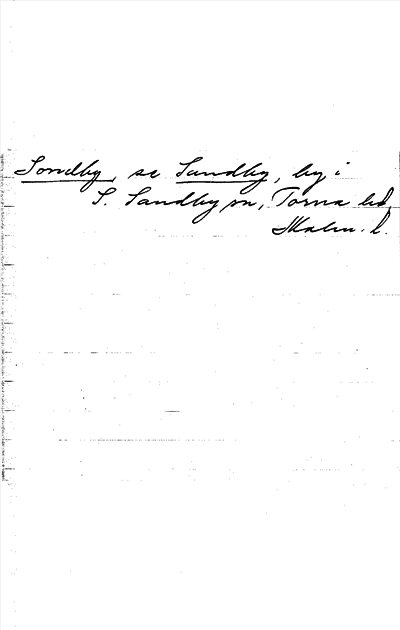 Sondby, se Sandby, by i
S. Sandby sn, Torna hd,
Malm. l.